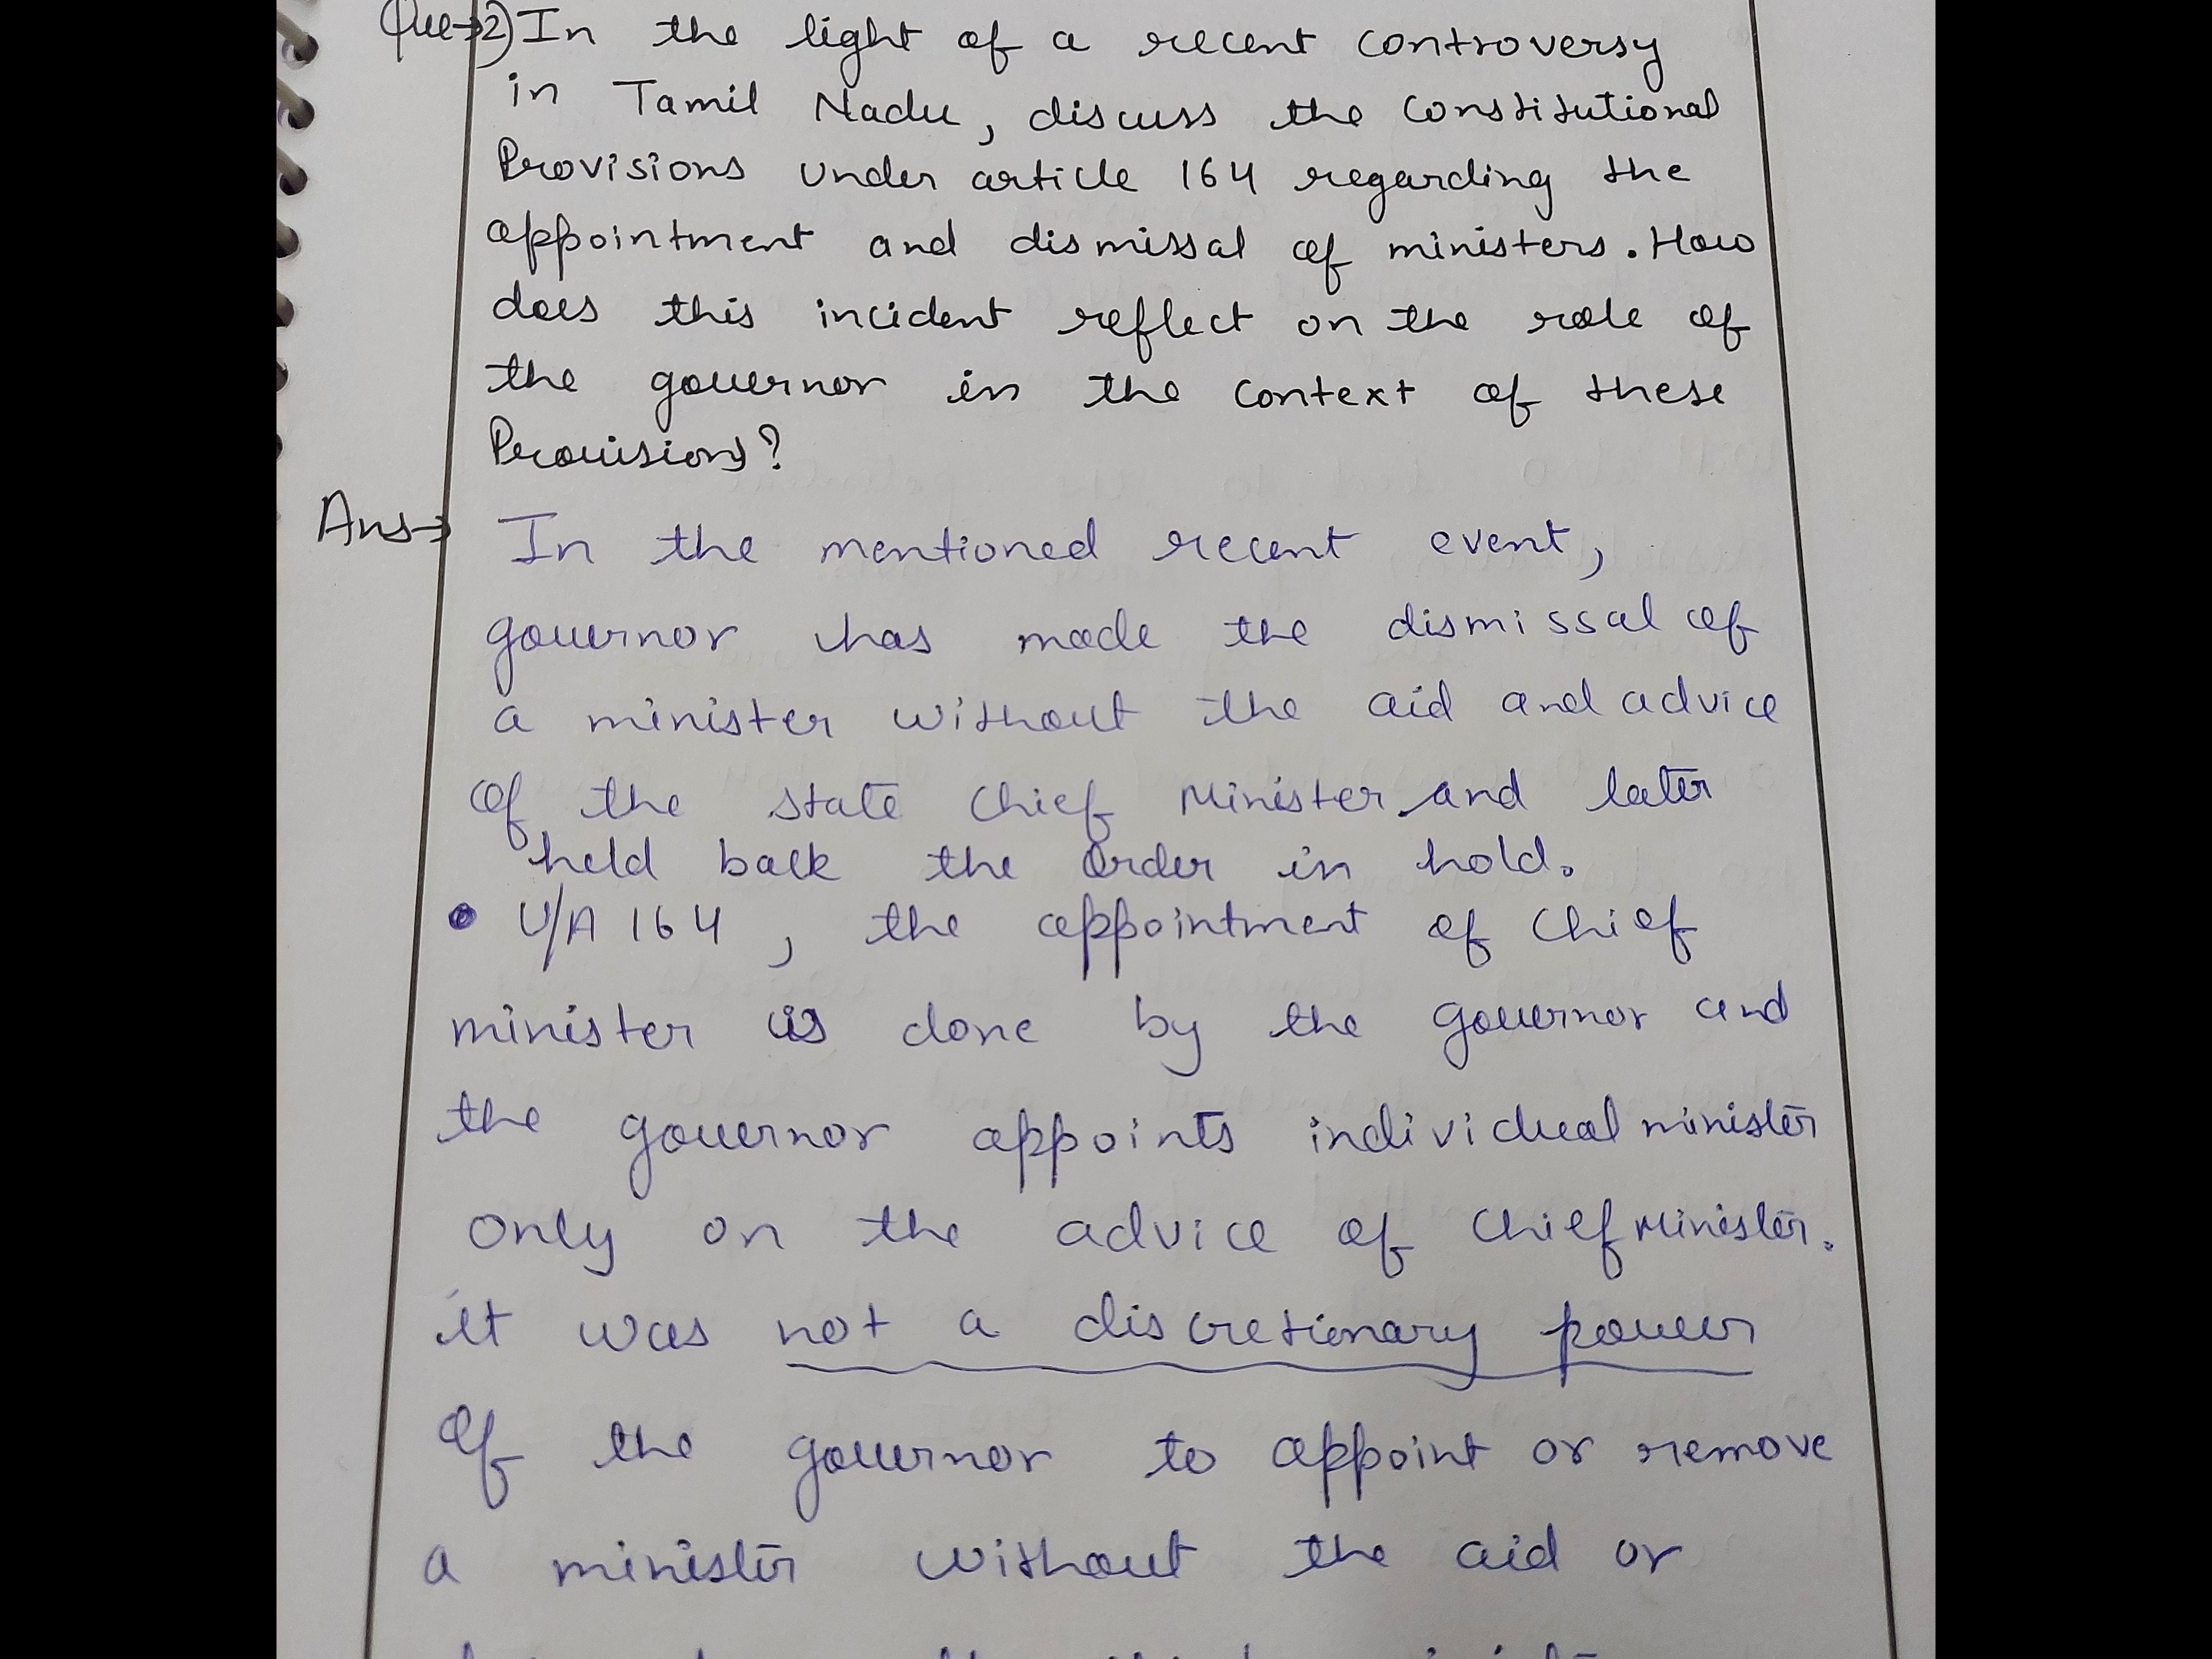 Que→2) In the light of a recent controversy
in Tamil Nadu, discuss the Constitutional
Provisions under article 164 regarding the
appointment and dismissal of ministers. How
does this incident reflect on the role of
the governor in the context of these
Provisions?
Ans→ In the mentioned recent event,
governor has made the dismissal of
a minister without the aid and advice
of the state Chief Minister and later
held back the order in hold.
• U/A 164, the appointment of Chief
minister is done by the governor and
the governor appoints individual minister
only on the advice of Chief Minister.
it was not a discretionary power
of the governor to appoint or remove
a minister without the aid or